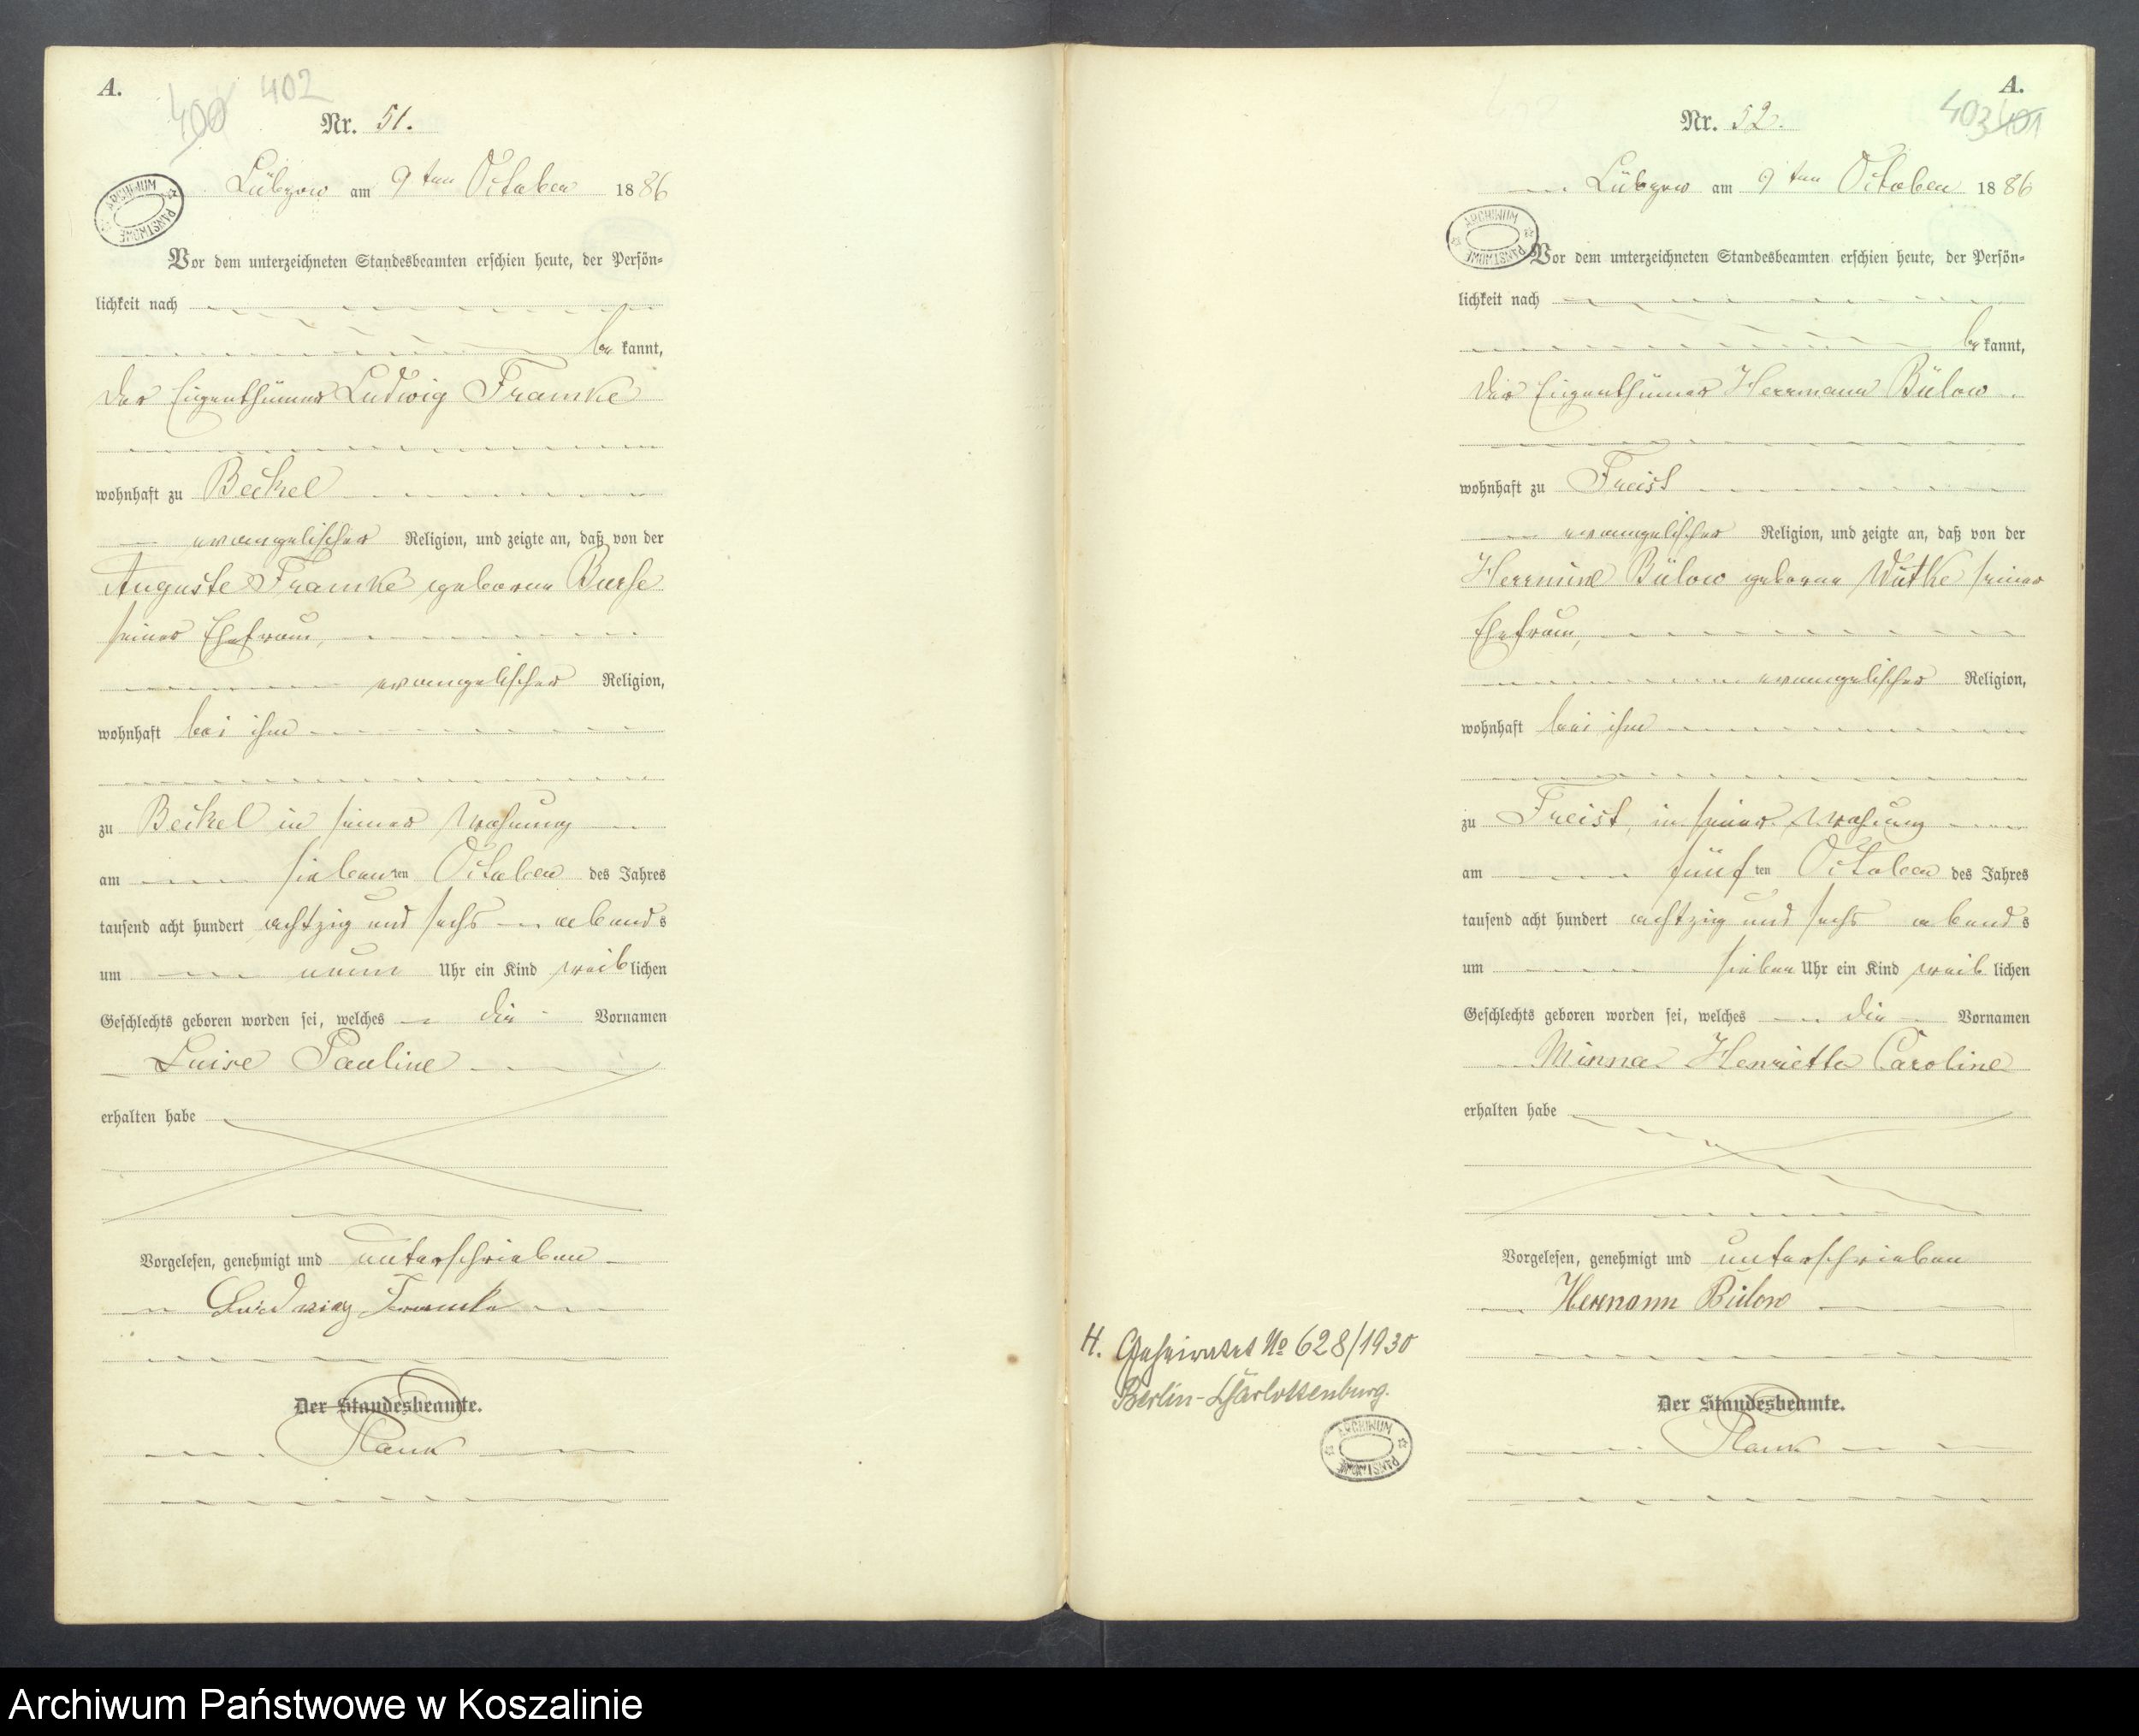 A.
400 402
Nr. 51.
Lübzow am 9ten October 1886
ARCHIWUM PAŃSTWOWE
Vor dem unterzeichneten Standesbeamten erschien heute, der Persön-
lichkeit nach
be kannt,
der Eigenthümer Ludwig Framke
wohnhaft zu Beckel
evangelischer Religion, und zeigte an, daß von der
Auguste Framke geborene
seiner Ehefrau,
evangelischer Religion,
wohnhaft bei ihm
zu Beckel in seiner Wohnung
am siebenten October des Jahres
tausend acht hundert achtzig und sechs abends
um neun Uhr ein Kind weiblichen
Geschlechts geboren worden sei, welches die Vornamen
Luise Pauline
erhalten habe
Vorgelesen, genehmigt und unterschrieben
Ludwig Framke
Der Standesbeamte.
A.
403 401
Nr. 52.
Lübzow am 9ten October 1886
ARCHIWUM PAŃSTWOWE
Vor dem unterzeichneten Standesbeamten erschien heute, der Persön-
lichkeit nach
be kannt,
der Eigenthümer Herrmann Bülow
wohnhaft zu Freist
evangelischer Religion, und zeigte an, daß von der
Hermine Bülow geborene Wutke seiner
Ehefrau,
evangelischer Religion,
wohnhaft bei ihm
zu Freist, in seiner Wohnung
am fünften October des Jahres
tausend acht hundert achtzig und sechs abends
um sieben Uhr ein Kind weiblichen
Geschlechts geboren worden sei, welches die Vornamen
Minna Henriette Caroline
erhalten habe
Vorgelesen, genehmigt und unterschrieben
Hermann Bülow
H. Geheiratet No 628/1930
Berlin-Charlottenburg.
ARCHIWUM PAŃSTWOWE
Der Standesbeamte.
Archiwum Państwowe w Koszalinie